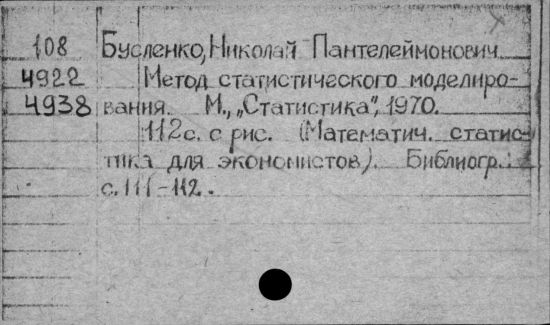 108 Бусленко, Николай Пантелеймонович
4922 Метод статистического моделиро-
4938 вания. М., „Статистика", 1970.
112с. с рис. (Математич. статис-
тика для экономистов). Библиогр.:
с. 111-112.